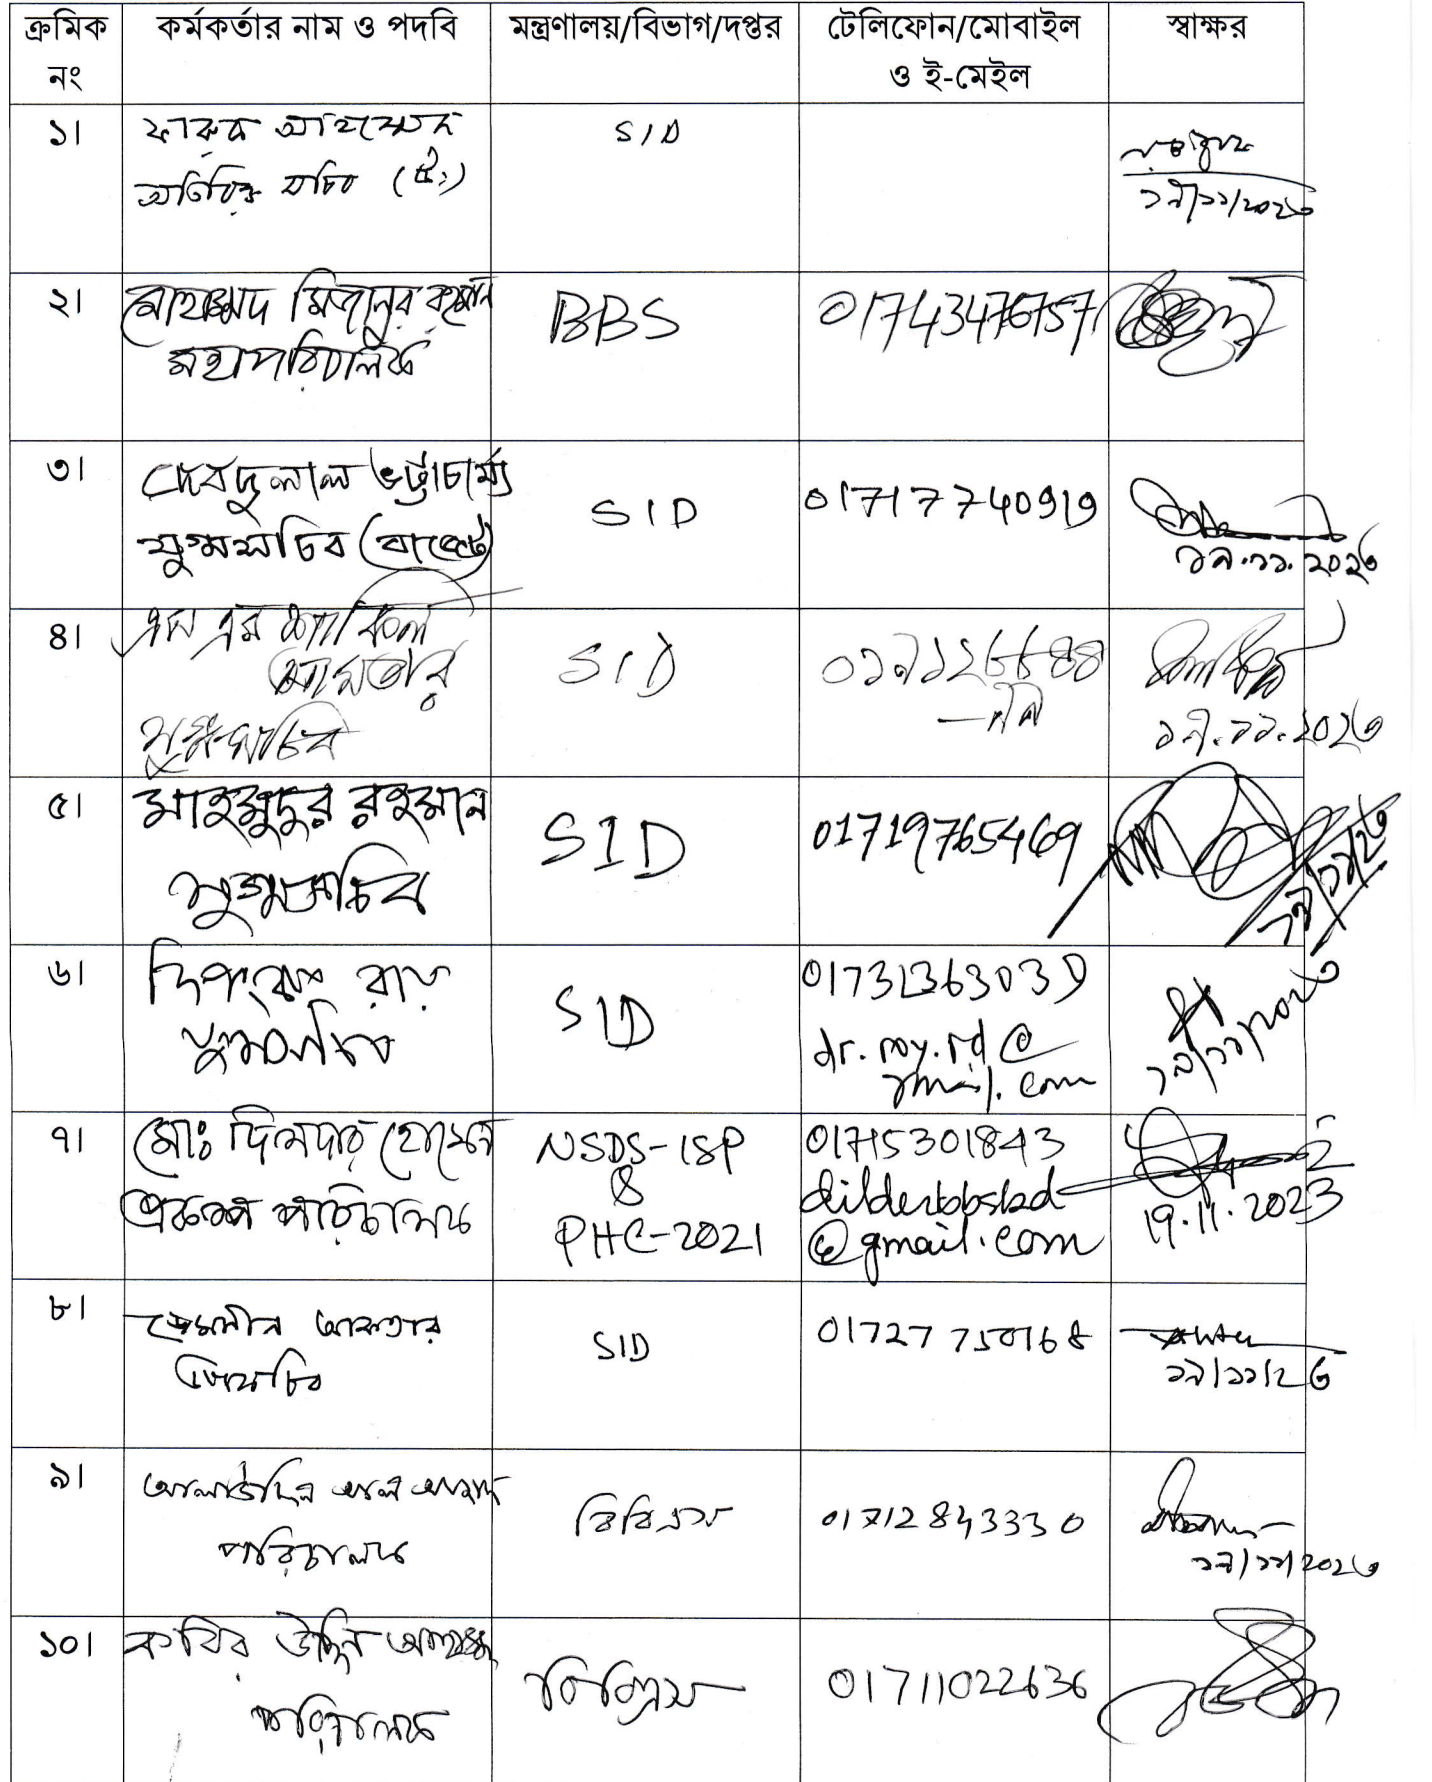 ক্রমিক নং
কর্মকর্তার নাম ও পদবি
মন্ত্রণালয়/বিভাগ/দপ্তর
টেলিফোন/মোবাইল
ও ই-মেইল
স্বাক্ষর
১।
ফারুক আহম্মেদ
অতিরিক্ত সচিব
SID
১৯/১১/২০২৩
২।
মোহাম্মদ মিজানুর রহমান
মহাপরিচালক
BBS
01743476757
৩।
দেবদুলাল ভট্টাচার্য্য
যুগ্মসচিব (বাজেট)
SID
01717740919
১৯.১১.২০২৩
৪।
এস এম শাকিল
আখতার
যুগ্মসচিব
SID
১৯.১১.২০২৩
৫।
মাহমুদুর রহমান
যুগ্মসচিব
SID
01719765469
৬।
দিপংকর রায়
যুগ্মসচিব
SID
dr.roy.rd@
gmail.com
১৯/১১/২০২৩
৭।
মোঃ দিলদার হোসেন
প্রকল্প পরিচালক
NSDS-ISP
&
PHC-2021
01715301843
@gmail.com
19.11.2023
৮।
আকতার
উপসচিব
SID
01727750168
১৯/১১/২৩
৯।
পরিচালক
বিবিএস
01712843330
১৯/১১/২০২৩
১০।
কবির উদ্দিন আহাম্মদ
পরিচালক
বিবিএস
01711022636